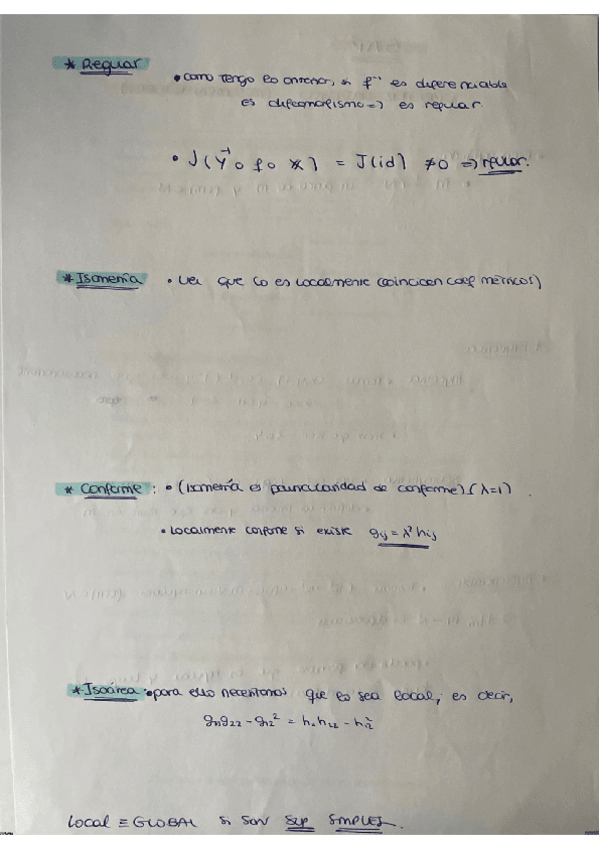 * Regular
• como tengo lo anterior, si f⁻¹ es diferenciable
es difeomorfismo => es regular.
• J(Y⁻¹ ∘ f ∘ X) = J(id) ≠ 0 => regular.
* Isometría • Ver que lo es localmente (coinciden coef métricos)
* Conforme : • (Isometría es particularidad de conforme) (λ=1).
• Localmente conforme si existe gij = λ² hij
* Isoárea • para ello necesitamos que lo sea local, es decir,
g₁₁g₂₂ - g₁₂² = h₁₁h₂₂ - h₁₂²
Local ≡ GLOBAL si son SUP SIMPLES.